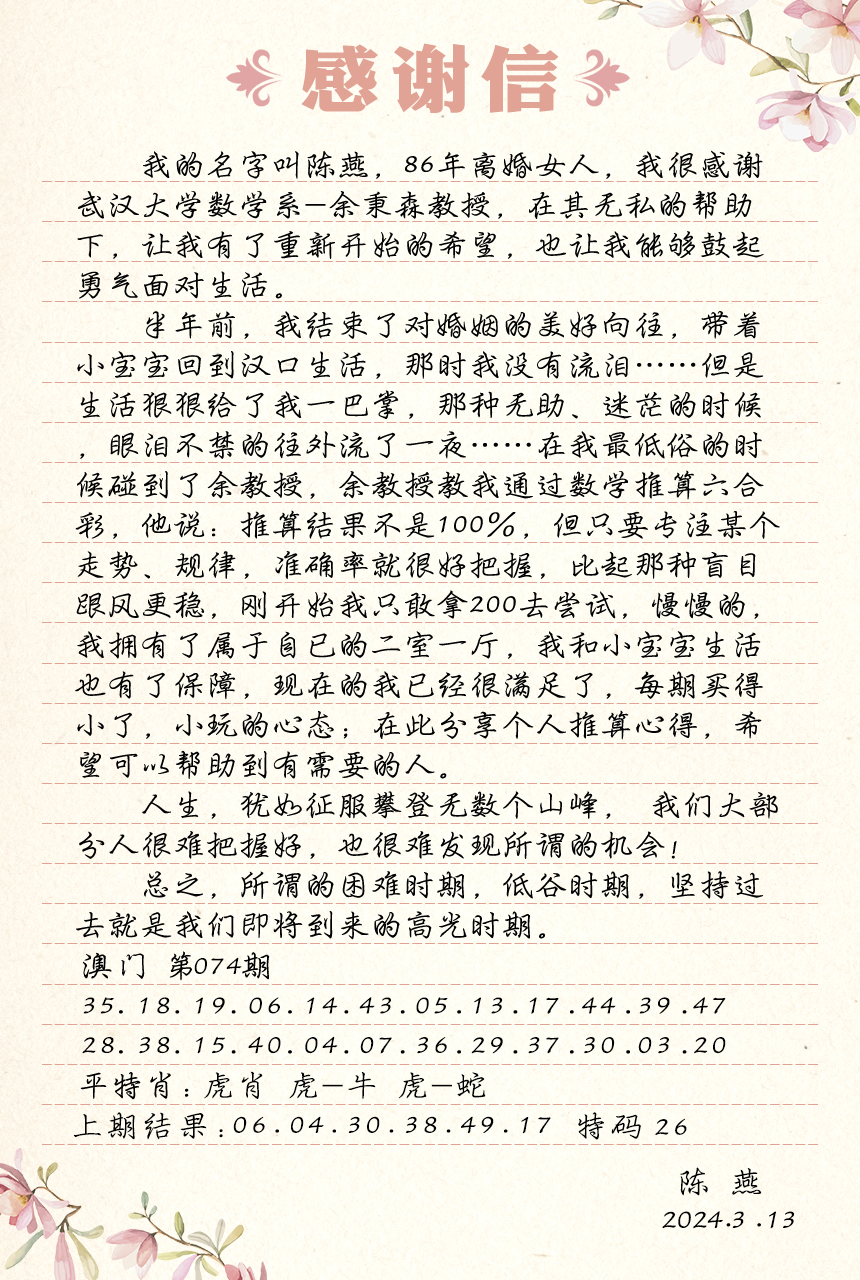 感谢信
我的名字叫陈燕，86年离婚女人，我很感谢
武汉大学数学系—余秉森教授，在其无私的帮助
下，让我有了重新开始的希望，也让我能够鼓起
勇气面对生活。
半年前，我结束了对婚姻的美好向往，带着
小宝宝回到汉口生活，那时我没有流泪……但是
生活狠狠给了我一巴掌，那种无助、迷茫的时候
，眼泪不禁的往外流了一夜……在我最低俗的时
候碰到了余教授，余教授教我通过数学推算六合
彩，他说：推算结果不是100%，但只要专注某个
走势、规律，准确率就很好把握，比起那种盲目
跟风更稳，刚开始我只敢拿200去尝试，慢慢的，
我拥有了属于自已的二室一厅，我和小宝宝生活
也有了保障，现在的我已经很满足了，每期买得
小了，小玩的心态；在此分享个人推算心得，希
望可以帮助到有需要的人。
人生，犹如征服攀登无数个山峰， 我们大部
分人很难把握好，也很难发现所谓的机会！
总之，所谓的困难时期，低谷时期，坚持过
去就是我们即将到来的高光时期。
澳门 第074期
35.18.19.06.14.43.05.13.17.44.39.47
28.38.15.40.04.07.36.29.37.30.03.20
平特肖：虎肖 虎—牛 虎—蛇
上期结果：06.04.30.38.49.17 特码 26
陈 燕
2024.3.13